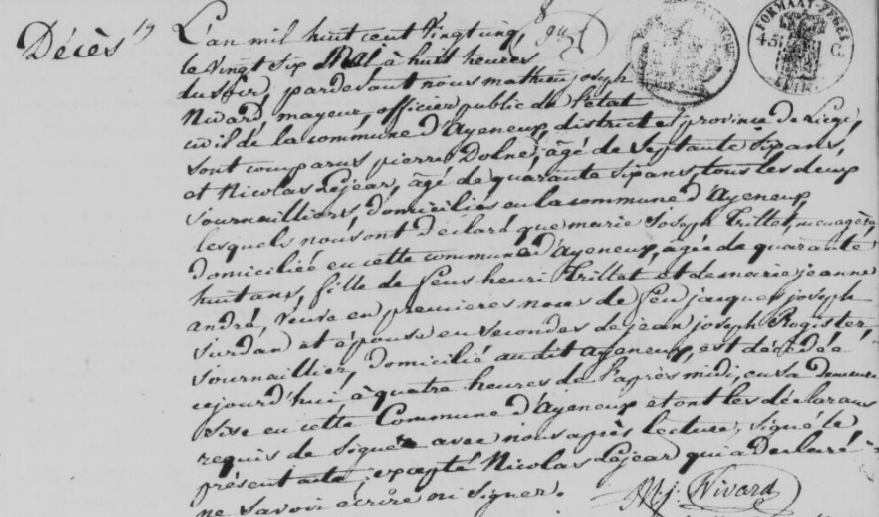 Décès
L'an mil huit cent Vingt ung,
le Vingt Six Mai à huit heures
du soir, pardevant nous mathieu joseph
Nivard, mayeur, officier public de l'état
civil de la commune d'Ayeneux, district et province de Liege,
sont comparus pierre Dolne, âgé de Septante Six ans,
et Nicolas Lejear, âgé de quarante Six ans, tous les deux
Journailliers, domiciliés en la commune d'Ayeneux,
lesquels nous ont déclaré que marie Joseph Trillet, menagère,
domiciliée en cette commune d'Ayeneux, agée de quarante
huit ans, fille de feus henri Trillet et de marie jeanne
andré, Veuve en premieres noces de feu jacques joseph
Surdan et épouse en Secondes de jean joseph Rogister,
Journaillier, domicilié au dit Ayeneux, est décédée
cejourd'hui à quatre heures de l'après midi, en sa demeure
Sise en cette Commune d'Ayeneux et ont les déclarans
requis de Signer avec nous après lecture, Signé le
présent acte, excepté Nicolas Lejear qui a declaré
ne savoir écrire ni Signer.
M. j. Nivard